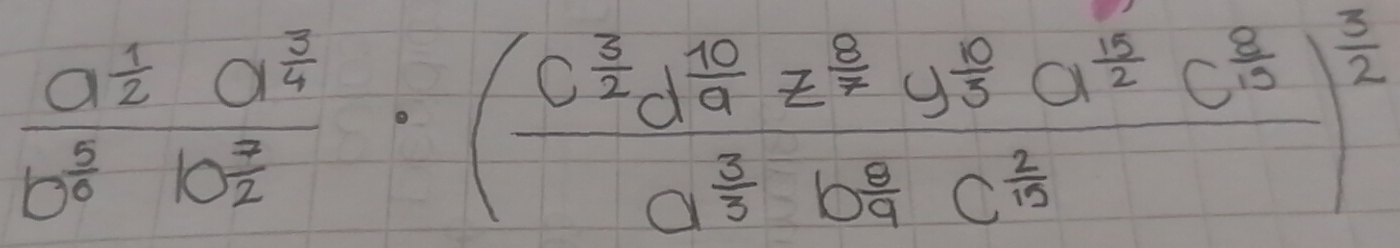 \frac{a^{\frac{1}{2}} a^{\frac{3}{4}}}{b^{\frac{5}{6}} b^{\frac{7}{2}}} \cdot \left( \frac{c^{\frac{3}{2}} d^{\frac{10}{9}} z^{\frac{8}{7}} y^{\frac{10}{3}} a^{\frac{15}{2}} c^{\frac{8}{15}}}{a^{\frac{3}{3}} b^{\frac{8}{9}} c^{\frac{2}{15}}} \right)^{\frac{3}{2}}